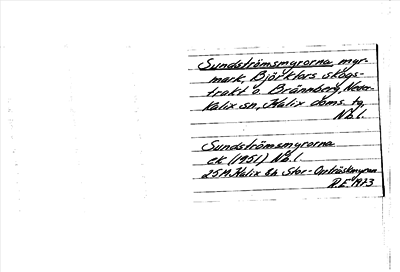 Sundströmsmyrorna myr-
mark, Björkfors skogs-
trakt o. Brännberg, Neder-
Kalix sn, Kalix doms. tg,
Nb.l.
Sundströmsmyrorna
ek (1951) Nb.l.
25M Kalix 8h Stor-Onträskmyran
R.E. 1973